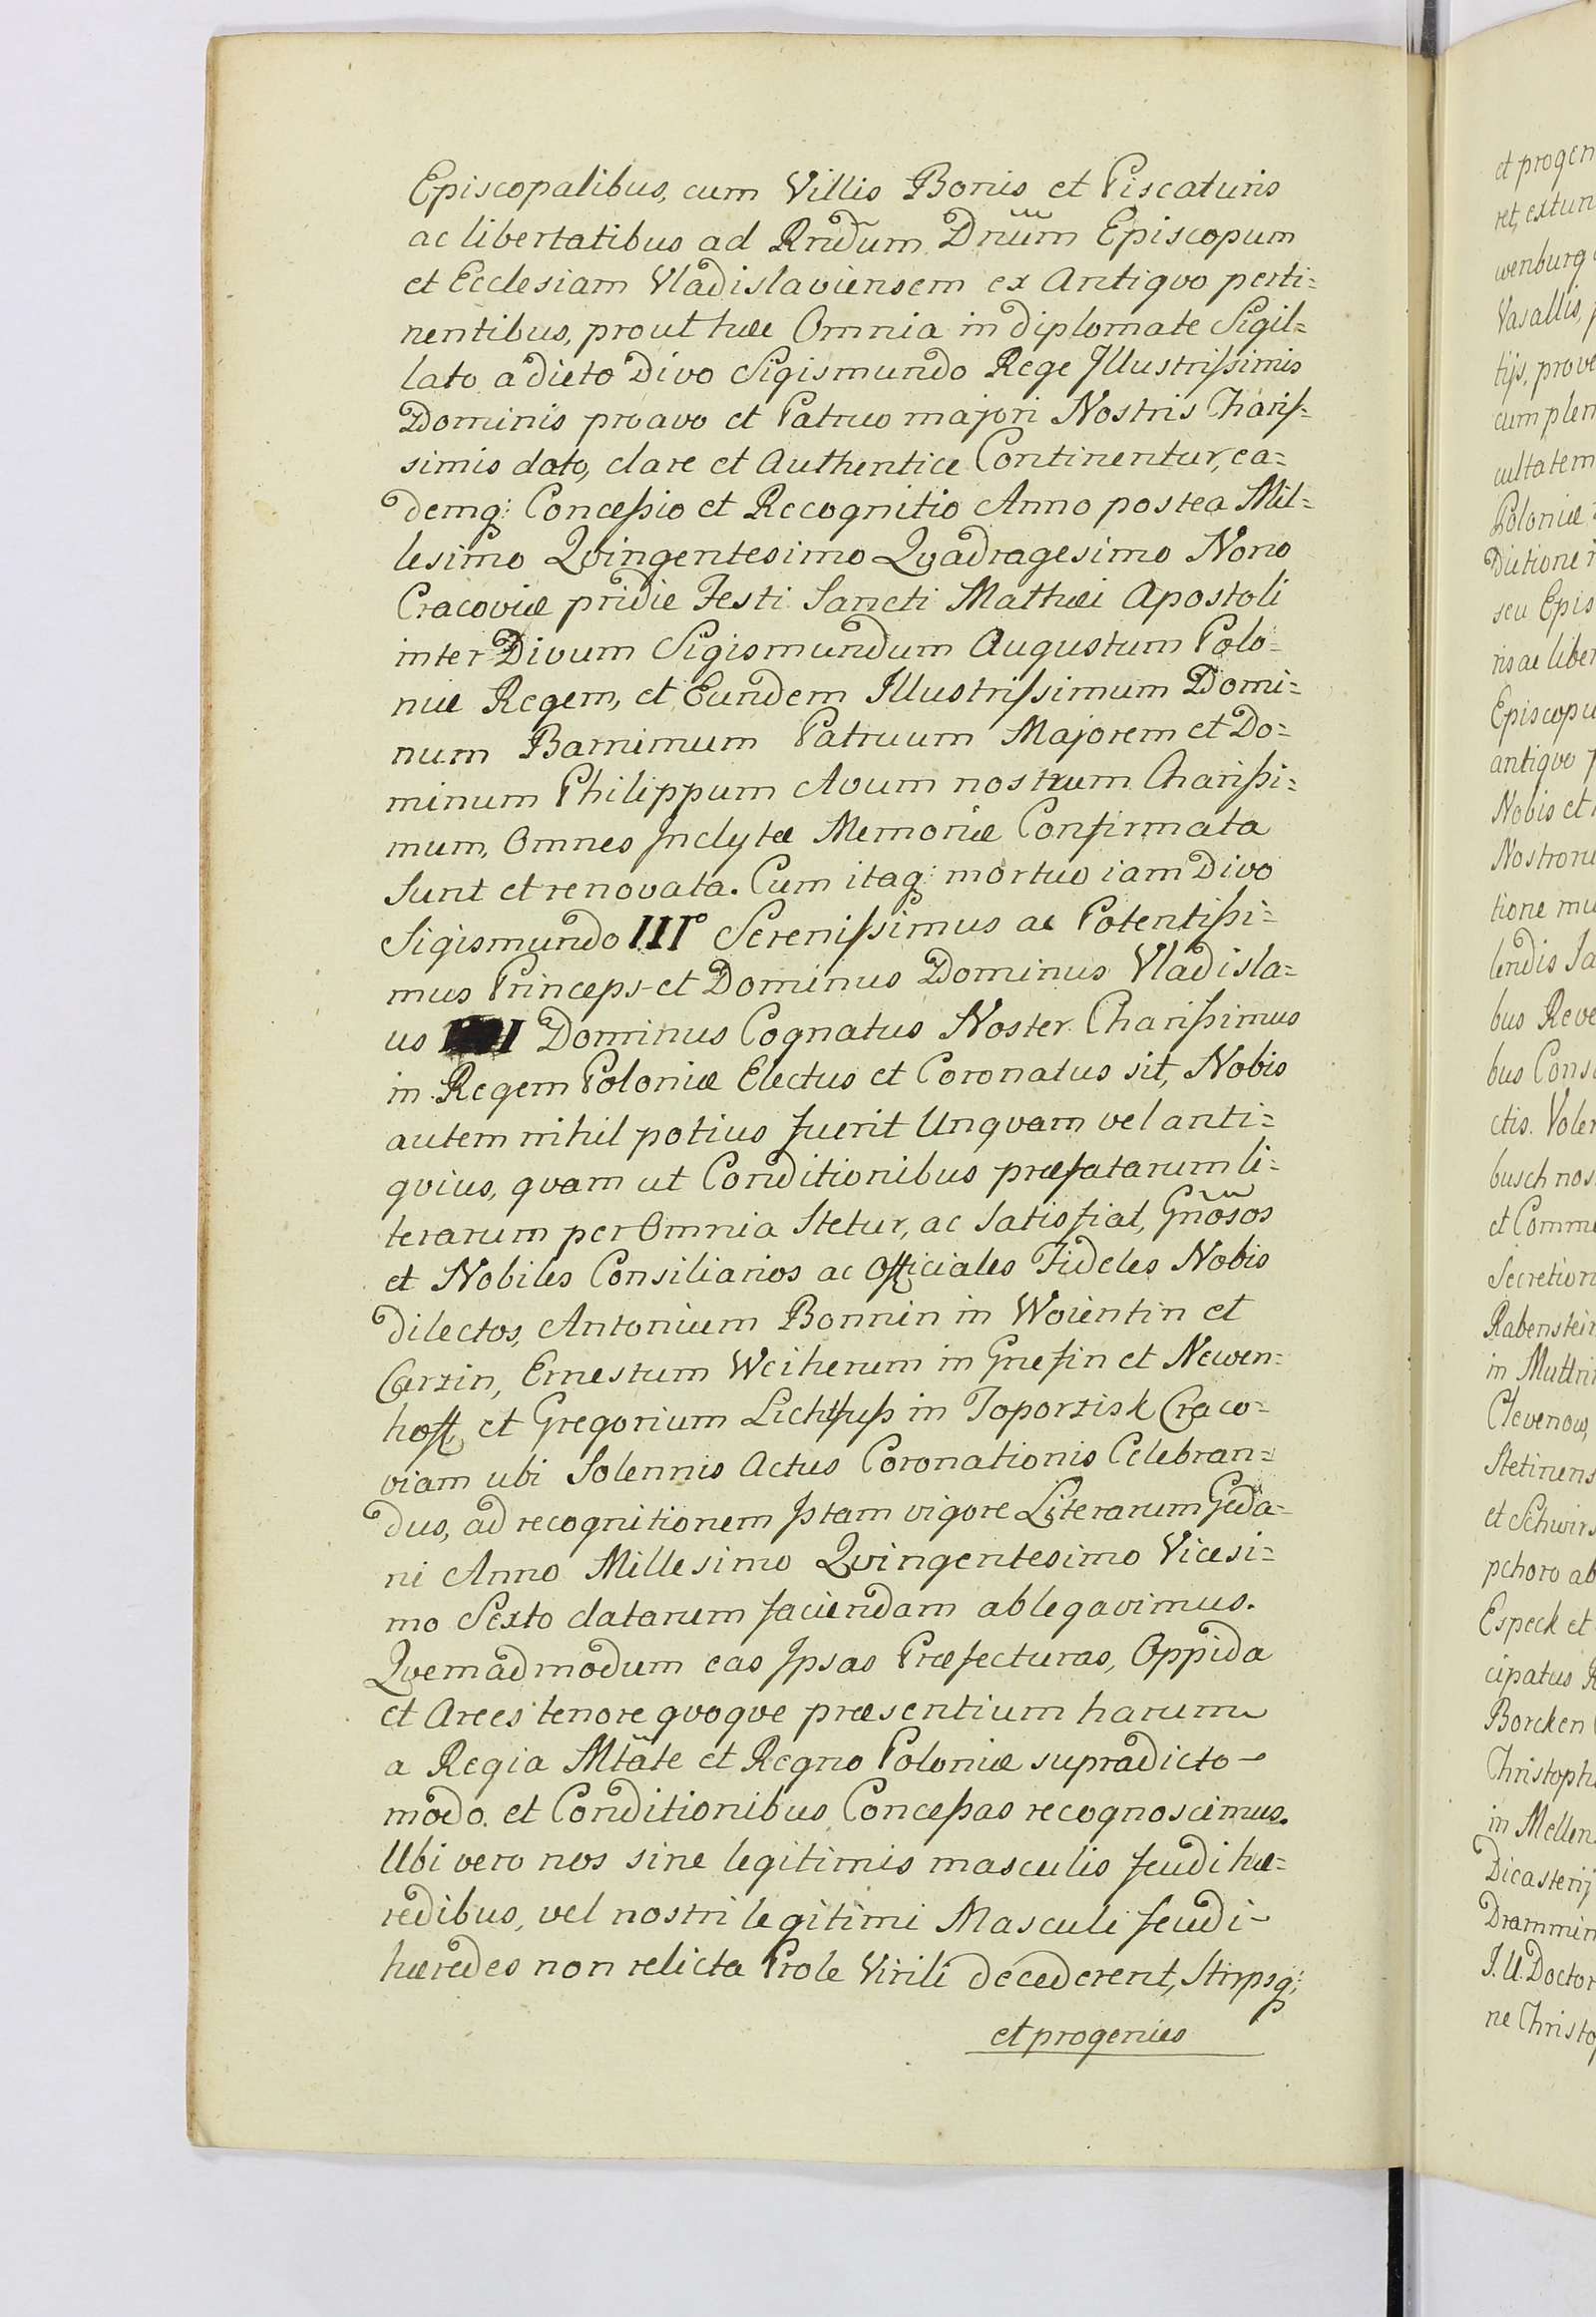 Episcopalibus, cum Villis Bonis et Piscaturis
ac libertatibus ad Rndum Dnum Episcopum
et Ecclesiam Vladislaviensem ex Antiqvo perti=
nentibus, prout hæc Omnia in diplomate Sigil=
lato a dicto Divo Sigismundo Rege Illustrissimis
Dominis proavo et Patruo majori Nostris Charis=
simis dato, clare et Authentice Continentur, ea=
demq: Concessio et Recognitio Anno postea Mil=
lesimo Qvingentesimo Qvadragesimo Nono
Cracoviæ pridie Festi Sancti Mathæi Apostoli
inter Divum Sigismundum Augustum Polo=
niæ Regem, et Eundem Illustrissimum Domi=
num Barnimum Patruum Majorem et Do=
minum Philippum Avum nostrum Charissi=
mum, Omnes Inclytæ Memoriæ Confirmata
Sunt et renovata. Cum itaq: mortuo iam Divo
Sigismundo III° Serenissimus ac Potentissi=
mus Princeps et Dominus Dominus Vladisla=
us I Dominus Cognatus Noster Charissimus
in Regem Poloniæ Electus et Coronatus sit, Nobis
autem nihil potius fuerit Unqvam vel anti=
qvius, qvam ut Conditionibus præfatarum li=
terarum per Omnia Stetur, ac Satisfiat, Gnosos
et Nobiles Consiliarios ac Officiales Fideles Nobis
dilectos, Antonium Bonnin in Woientin et
Carzin, Ernestum Weiherum in Gnefin et Newen=
hoff, et Gregorium Lichtfuss in Toporzisk Craco=
viam ubi Solennis Actus Coronationis Celebran=
dus, ad recognitionem Istam vigore Literarum Geda=
ni Anno Millesimo Qvingentesimo Vicesi=
mo Sexto datarum faciendam ablegavimus.
Qvemadmodum eas Ipsas Præfecturas, Oppida
et Arces tenore qvoqve præsentium harum
a Regia Mtate et Regno Poloniæ supradicto
modo et Conditionibus Concessas recognoscimus.
Ubi vero nos sine legitimis masculis feudi hæ=
redibus, vel nostri legitimi Masculi feudi
hæredes non relicta Prole Virili decederent, Stirpsq:
et progenies
et progen
ret, extun
wenburg
Vasallis,
tijs, prove
cum plen
cultatem
Poloniæ
Dictione
seu Epis
ris ac liber
Episcopu
antiqvo
Nobis et
Nostroru
tione mu
lendis Sa
bus Reve
bus Cons
ctis. Volen
busch nos
et Commu
Secretion
Rabenstein
in Muttri
Clevenow,
Stetinens
et Schwirs
pchoro ab
Especk et
cipatus R
Borcken
Christoph
in Mellen
Dicasterij
Drammin
J. U. Doctor
ne Christo